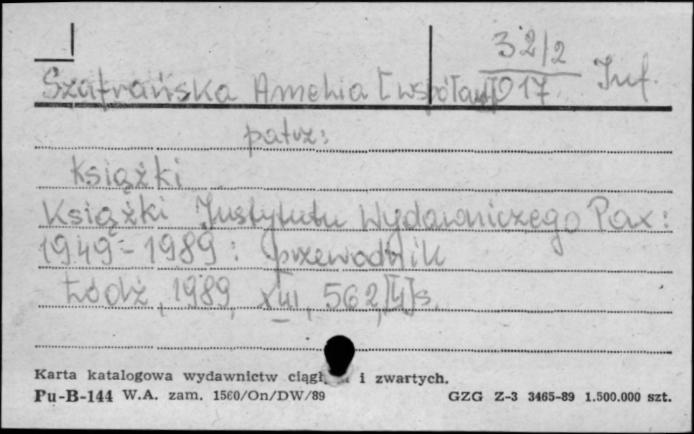 32/2
017 Inf.
Szafrańska Amelia [współaut]
patrz:
Książki
Książki Instytutu Wydawniczego Pax:
1949-1989: przewodnik
Łódź, 1989, XIII, 562,[4]s.
Karta katalogowa wydawnictw i zwartych.
Pu-B-144 W.A. zam. 1560/On/DW/89 GZG Z-3 3465-89 1.500.000 szt.